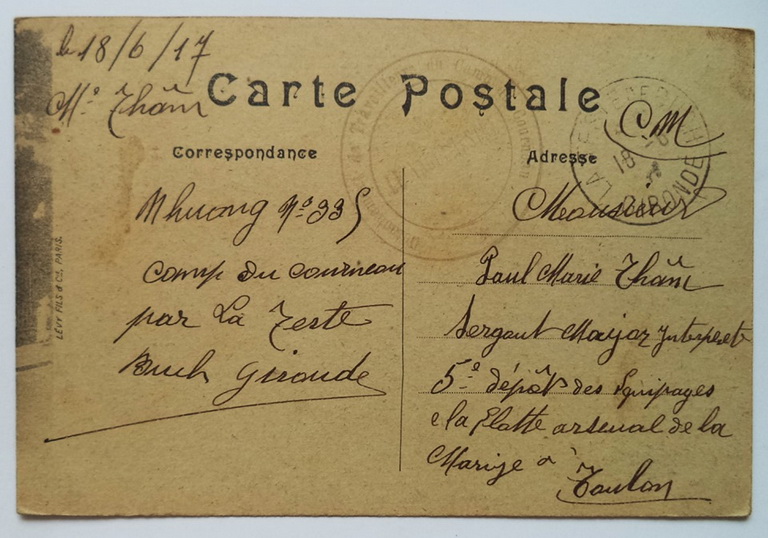 le 18/6/17
Mr Thâm
Carte Postale
CM
Correspondance
Adresse
Nhuong No 335
camp du courneau
par La Teste
Buch Gironde
Monsieur
Paul Marie Thâm
Sergent Major Interprete
5e dépôts des Equipages
de la Flotte arsenal de la
Marine à
Toulon
LÉVY FILS & Cie, PARIS.
LA TESTE DE BUCH
GIRONDE
18